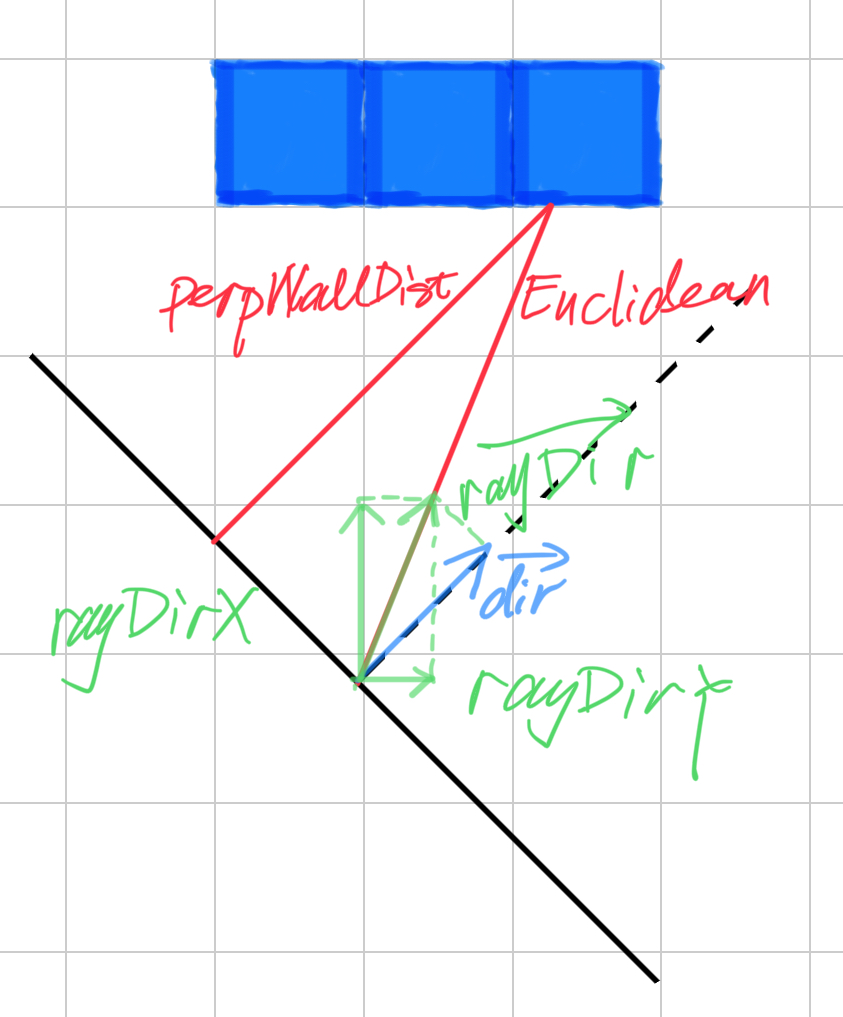 perpWallDist
Euclidean
rayDir
dir
rayDirX
rayDirY